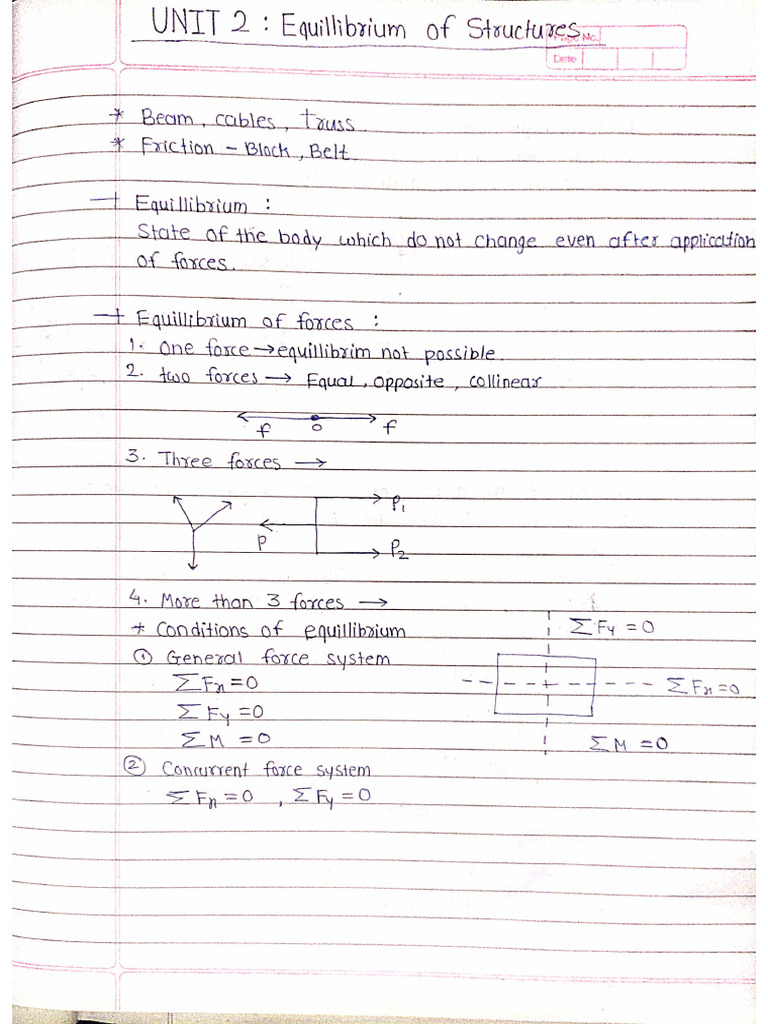 UNIT 2 : Equillibrium of Structures
Page No.
Date
* Beam, cables, truss
* Friction - Block, Belt
→ Equillibrium :
State of the body which do not change even after application
of forces.
→ Equillibrium of forces :
1. one force → equillibrim not possible
2. two forces → Equal, opposite, collinear
f o f
3. Three forces →
P P1
P2
4. More than 3 forces →
* Conditions of equillibrium
ΣFy = 0
① General force system
ΣFx = 0
ΣFx = 0
ΣFy = 0
ΣM = 0
ΣM = 0
② Concurrent force system
ΣFx = 0 , ΣFy = 0